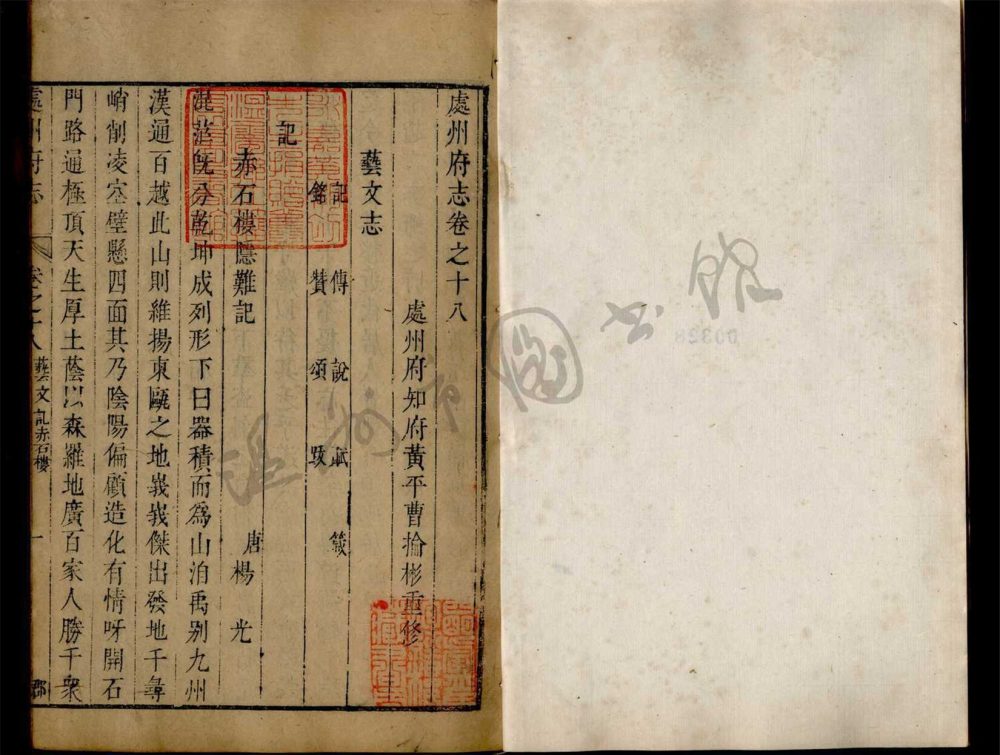 處州府志卷之十八
處州府知府黃平曹掄彬重修
藝文志
記 傳 說 賦 箴
銘 贊 頌 跋
記
赤石樓隱難記 唐 楊光
混茫既分乾坤成列形下曰器積而為山洎禹別九州
漢通百越此山則維揚東甌之地峩峩傑出發地千尋
峭削凌空壁懸四面其乃陰陽偏顧造化有情呀開石
門路通極頂天生厚土蔭以森羅地廣百家人勝千衆
處州府志 卷之十八 藝文 記赤石樓 一 郡
溫州市圖書館